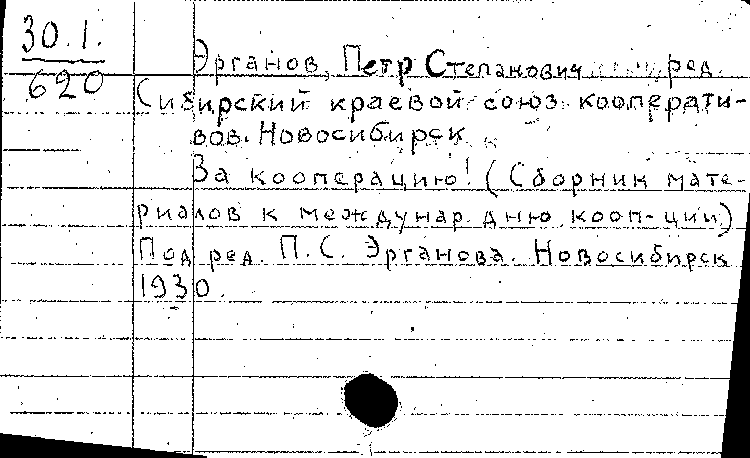 30.1.
620
Эрганов, Петр Степанович ред.
Сибирский краевой союз кооперати-
вов. Новосибирск
За кооперацию! (Сборник мате-
риалов к междунар. дню кооп-ции)
Под ред. П.С. Эрганова. Новосибирск
1930.